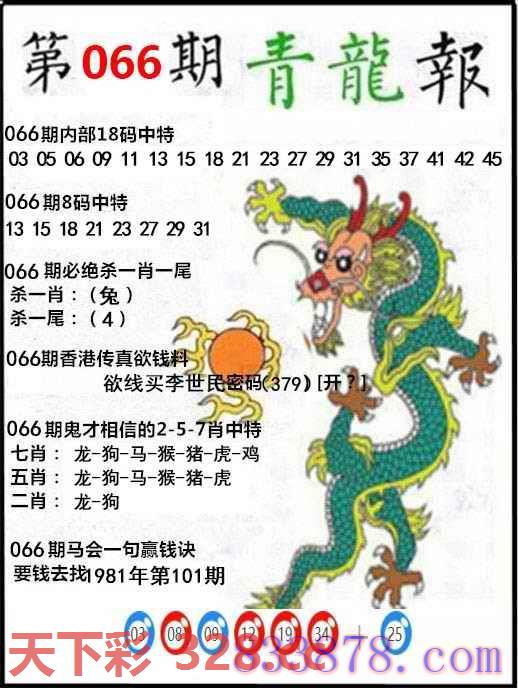 第066期青龍報
066期内部18码中特
03 05 06 09 11 13 15 18 21 23 27 29 31 35 37 41 42 45
066期8码中特
13 15 18 21 23 27 29 31
066期必绝杀一肖一尾
杀一肖：(兔)
杀一尾：(4)
066期香港传真欲钱料
欲线买李世民密码(379)[开?]
066期鬼才相信的2-5-7肖中特
七肖： 龙-狗-马-猴-猪-虎-鸡
五肖： 龙-狗-马-猴-猪-虎
二肖： 龙-狗
066期马会一句赢钱诀
要钱去找1981年第101期
03 08 09 12 19 34 | 25
天下彩
33878.com